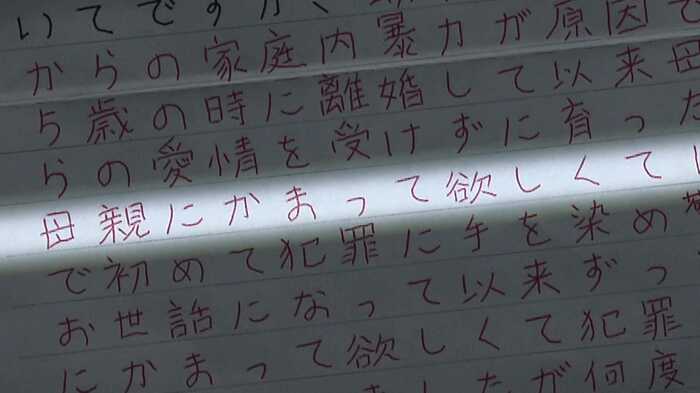 いてですが、
からの家庭内暴力が原因で
5歳の時に離婚して以来母
らの愛情を受けずに育った
母親にかまって欲しくて
で初めて犯罪に手を染め
お世話になって以来ずっ
にかまって欲しくて犯罪
たが何度